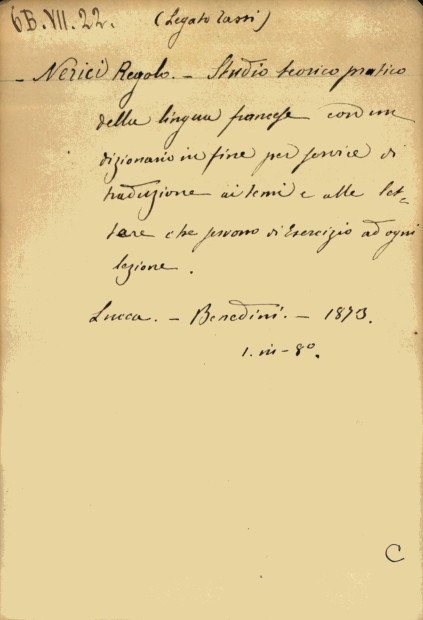 6B.VII.22. (Legato Tassi)
- Nerici Regolo. - Studio teorico pratico
della lingua francese con un
dizionario in fine per servire di
traduzione ai temi e alle let-
tere che servono di Esercizio ad ogni
lezione.
Lucca. - Benedini. - 1873.
1. in - 8º.
C